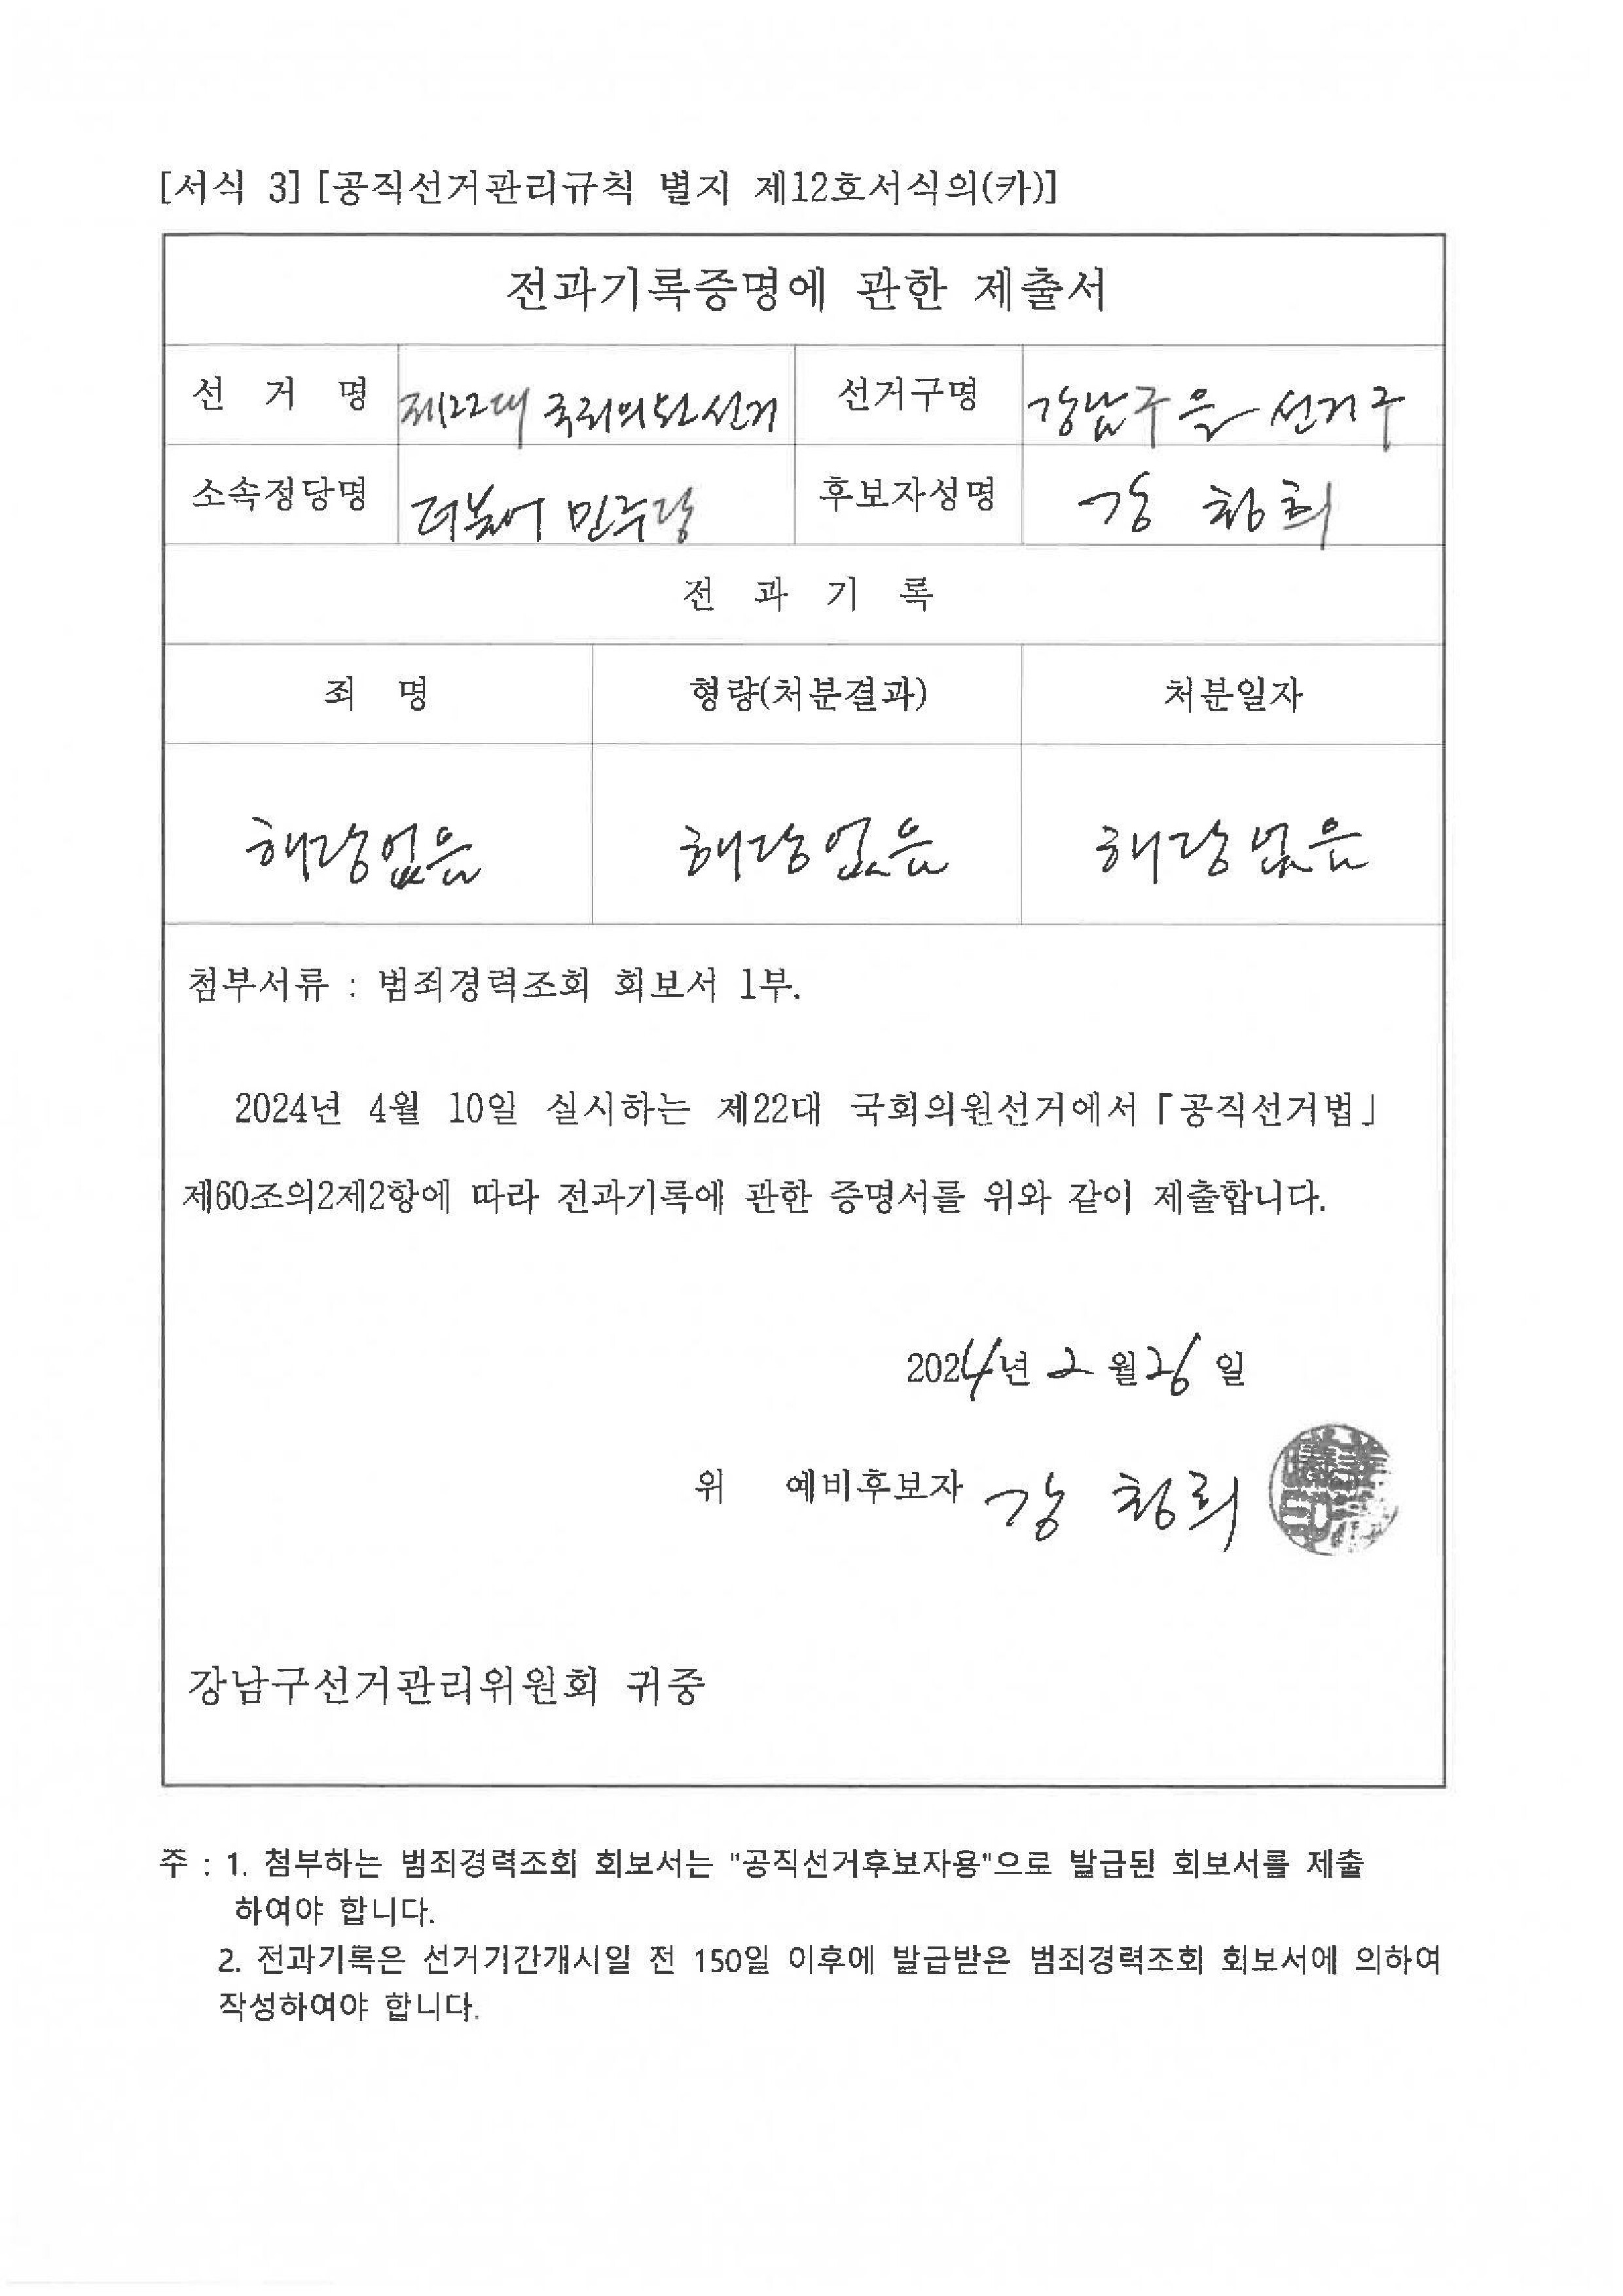 [서식 3] [공직선거관리규칙 별지 제12호서식의(카)]
전과기록증명에 관한 제출서
선 거 명 제22대 국회의원선거 선거구명 강남구을 선거구
소속정당명 더불어 민주당 후보자성명 강 청희
전 과 기 록
죄 명 형량(처분결과) 처분일자
해당없음 해당없음 해당없음
첨부서류 : 범죄경력조회 회보서 1부.
2024년 4월 10일 실시하는 제22대 국회의원선거에서「공직선거법」
제60조의2제2항에 따라 전과기록에 관한 증명서를 위와 같이 제출합니다.
2024년 2월 26일
위 예비후보자 강 청희
강남구선거관리위원회 귀중
주 : 1. 첨부하는 범죄경력조회 회보서는 "공직선거후보자용"으로 발급된 회보서를 제출
하여야 합니다.
2. 전과기록은 선거기간개시일 전 150일 이후에 발급받은 범죄경력조회 회보서에 의하여
작성하여야 합니다.